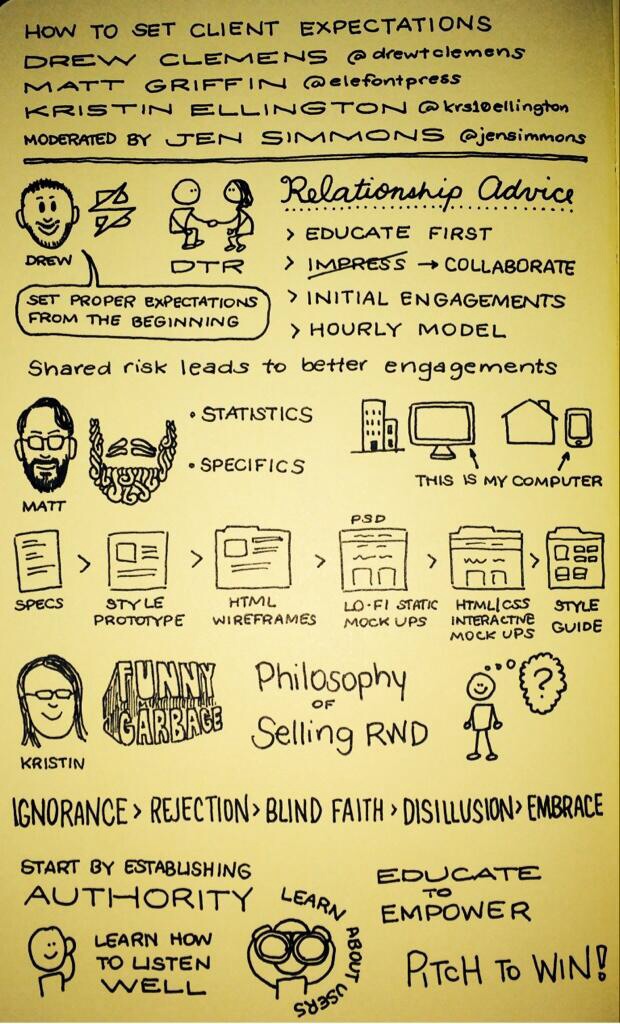 HOW TO SET CLIENT EXPECTATIONS
DREW CLEMENS @drewtclemens
MATT GRIFFIN @elefontpress
KRISTIN ELLINGTON @krs10ellington
MODERATED BY JEN SIMMONS @jensimmons
DREW
DTR
SET PROPER EXPECTATIONS
FROM THE BEGINNING
Relationship Advice
> EDUCATE FIRST
> IMPRESS → COLLABORATE
> INITIAL ENGAGEMENTS
> HOURLY MODEL
Shared risk leads to better engagements
MATT
• STATISTICS
• SPECIFICS
THIS IS MY COMPUTER
SPECS
>
STYLE
PROTOTYPE
>
HTML
WIREFRAMES
>
PSD
LO-FI STATIC
MOCK UPS
>
HTML/CSS
INTERACTIVE
MOCK UPS
>
STYLE
GUIDE
KRISTIN
FUNNY
GARBAGE
Philosophy
OF
Selling RWD
?
IGNORANCE > REJECTION > BLIND FAITH > DISILLUSION > EMBRACE
START BY ESTABLISHING
AUTHORITY
LEARN HOW
TO LISTEN
WELL
LEARN ABOUT USERS
EDUCATE
TO
EMPOWER
PITCH TO WIN!